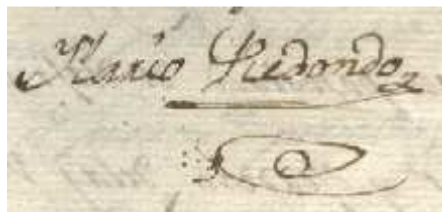 Ylario Redondo